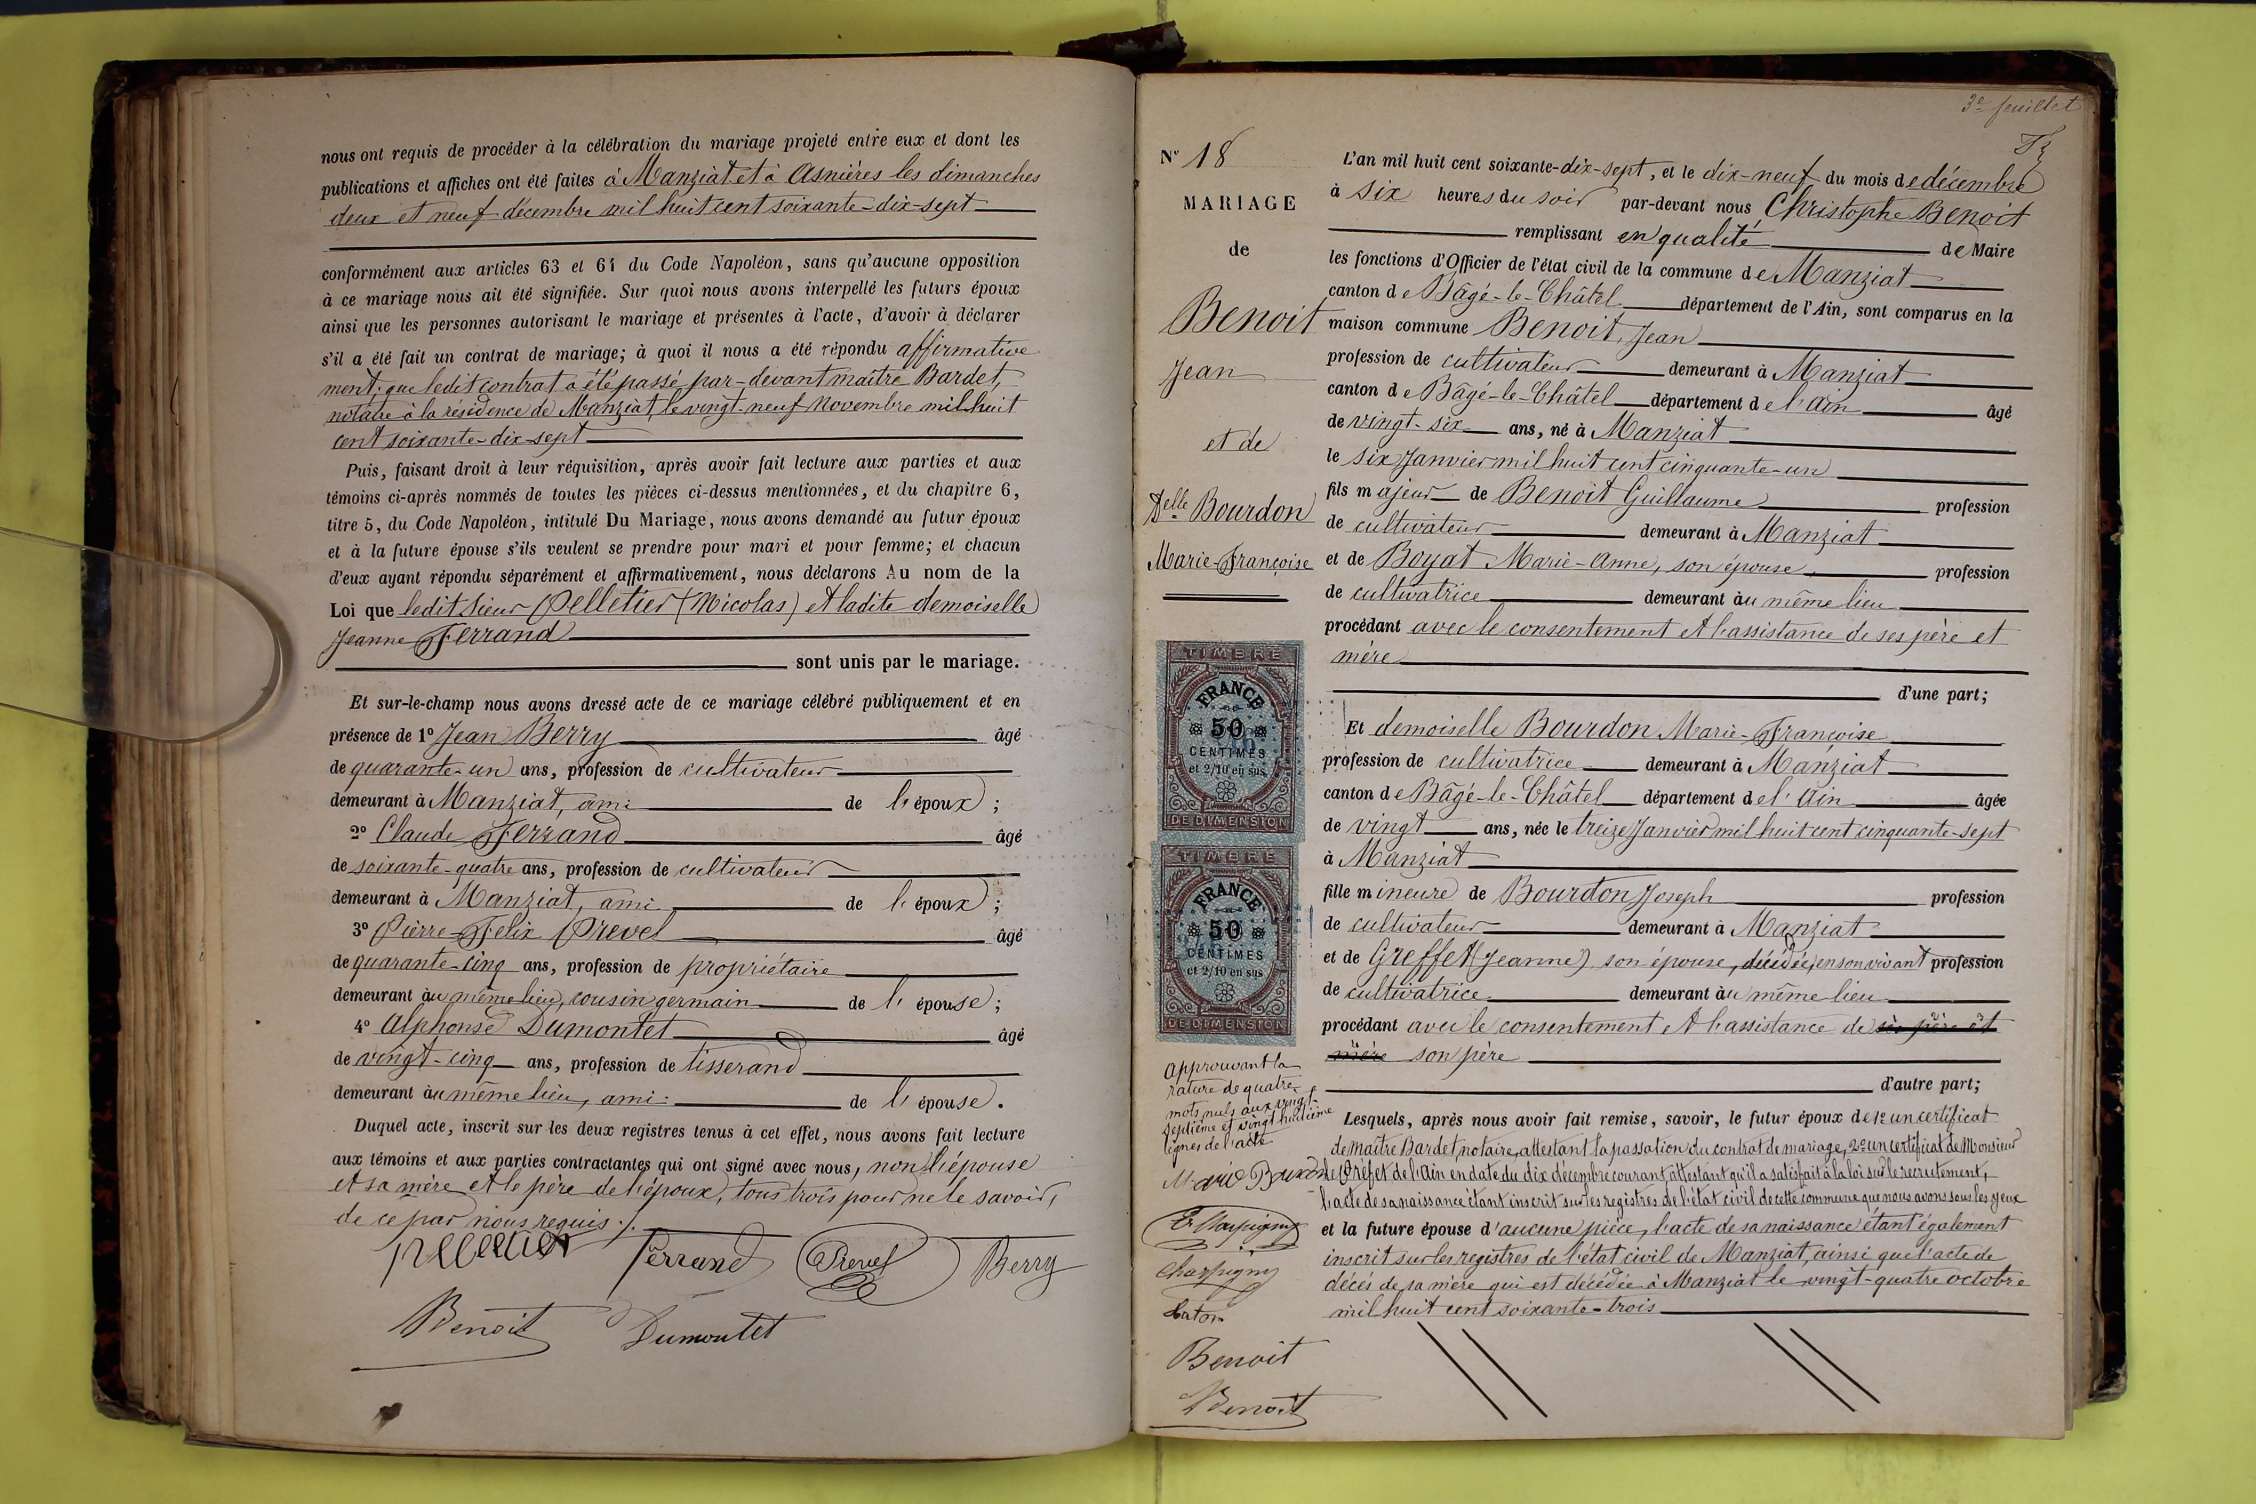 nous ont requis de procéder à la célébration du mariage projeté entre eux et dont les
publications et affiches ont été faites à Manziat et à Asnières les dimanches
deux et neuf décembre mil huit cent soixante-dix-sept
conformément aux articles 63 et 64 du Code Napoléon, sans qu'aucune opposition
à ce mariage nous ait été signifiée. Sur quoi nous avons interpellé les futurs époux
ainsi que les personnes autorisant le mariage et présentes à l'acte, d'avoir à déclarer
s'il a été fait un contrat de mariage; à quoi il nous a été répondu affirmative
ment; que ledit contrat a été passé par-devant maître Bardet,
notaire à la résidence de Manziat, le vingt-neuf Novembre mil huit
cent soixante-dix-sept
Puis, faisant droit à leur réquisition, après avoir fait lecture aux parties et aux
témoins ci-après nommés de toutes les pièces ci-dessus mentionnées, et du chapitre 6,
titre 5, du Code Napoléon, intitulé Du Mariage, nous avons demandé au futur époux
et à la future épouse s'ils veulent se prendre pour mari et pour femme; et chacun
d'eux ayant répondu séparément et affirmativement, nous déclarons Au nom de la
Loi que ledit Sieur Pelletier (Nicolas) et ladite demoiselle
Jeanne Ferrand
sont unis par le mariage.
Et sur-le-champ nous avons dressé acte de ce mariage célébré publiquement et en
présence de 1º Jean Berry âgé
de quarante-un ans, profession de cultivateur
demeurant à Manziat, ami de l'époux;
2º Claude Ferrand âgé
de soixante-quatre ans, profession de cultivateur
demeurant à Manziat, ami de l'époux;
3º Pierre-Felix Prevel âgé
de quarante-cinq ans, profession de propriétaire
demeurant au même lieu, cousin germain de l'épouse;
4º Alphonse Dumontet âgé
de vingt-cinq ans, profession de tisserand
demeurant au même lieu, ami de l'épouse.
Duquel acte, inscrit sur les deux registres tenus à cet effet, nous avons fait lecture
aux témoins et aux parties contractantes qui ont signé avec nous, non l'épouse
et sa mère et le père de l'époux, tous trois pour ne le savoir,
de ce par nous requis ./.
Pelletier Ferrand Prevel Berry
Benoit Dumontet
3e feuillet
Nº 18
MARIAGE
de
Benoit
Jean
et de
Delle Bourdon
Marie-Françoise
TIMBRE
FRANCE
50
CENTIMES
et 2/10 en sus
DE DIMENSION
TIMBRE
FRANCE
50
CENTIMES
et 2/10 en sus
DE DIMENSION
Approuvant la
rature de quatre
mots nuls aux vingt-
septième et vingt huitième
lignes de l'acte
Marie Bourdon
Charpigny
Benoit
Benoit
L'an mil huit cent soixante-dix-sept, et le dix-neuf du mois de décembre
à six heures du soir par-devant nous Christophe Benoit
remplissant en qualité de Maire
les fonctions d'Officier de l'état civil de la commune de Manziat
canton de Bâgé-le-Châtel département de l'Ain, sont comparus en la
maison commune Benoit, Jean
profession de cultivateur demeurant à Manziat
canton de Bâgé-le-Châtel département de l'Ain âgé
de vingt-six ans, né à Manziat
le six Janvier mil huit cent cinquante-un
fils majeur de Benoit Guillaume profession
de cultivateur demeurant à Manziat
et de Boyat Marie-Anne, son épouse, profession
de cultivatrice demeurant au même lieu
procédant avec le consentement et l'assistance de ses père et
mère
d'une part;
Et demoiselle Bourdon Marie-Françoise
profession de cultivatrice demeurant à Manziat
canton de Bâgé-le-Châtel département de l'Ain âgée
de vingt ans, née le treize Janvier mil huit cent cinquante-sept
à Manziat
fille mineure de Bourdon Joseph profession
de cultivateur demeurant à Manziat
et de Greffet (Jeanne) son épouse, décédée, en son vivant profession
de cultivatrice demeurant au même lieu
procédant avec le consentement et l'assistance de ses père et
mère son père
d'autre part;
Lesquels, après nous avoir fait remise, savoir, le futur époux de 1º un certificat
de Maître Bardet, notaire, attestant la passation du contrat de mariage, 2º un certificat de Monsieur
le Préfet de l'Ain en date du dix décembre courant, attestant qu'il a satisfait à la loi sur le recrutement,
l'acte de sa naissance étant inscrit sur les registres de l'état civil de cette commune que nous avons sous les yeux
et la future épouse d'aucune pièce, l'acte de sa naissance étant également
inscrit sur les registres de l'état civil de Manziat, ainsi que l'acte de
décès de sa mère qui est décédée à Manziat le vingt-quatre octobre
mil huit cent soixante-trois